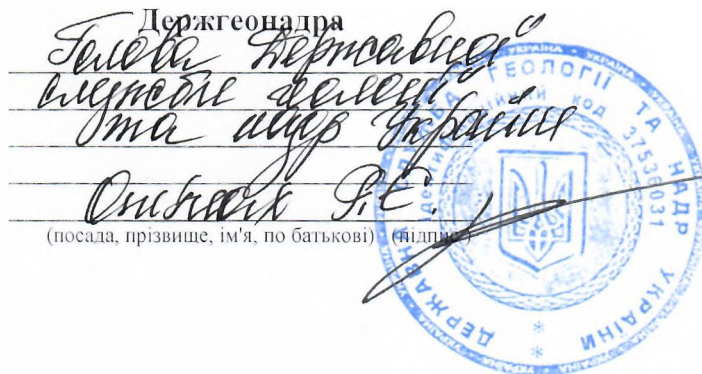 Держгеонадра
Голова Державної
служби геології
та надр України
Опімах Р.Є.
(посада, прізвище, ім'я, по батькові) (підпис)
ДЕРЖАВНА СЛУЖБА ГЕОЛОГІЇ ТА НАДР УКРАЇНИ * *
Ідентифікаційний код 37536031
УКРАЇНА * УКРАЇНА * УКРАЇНА